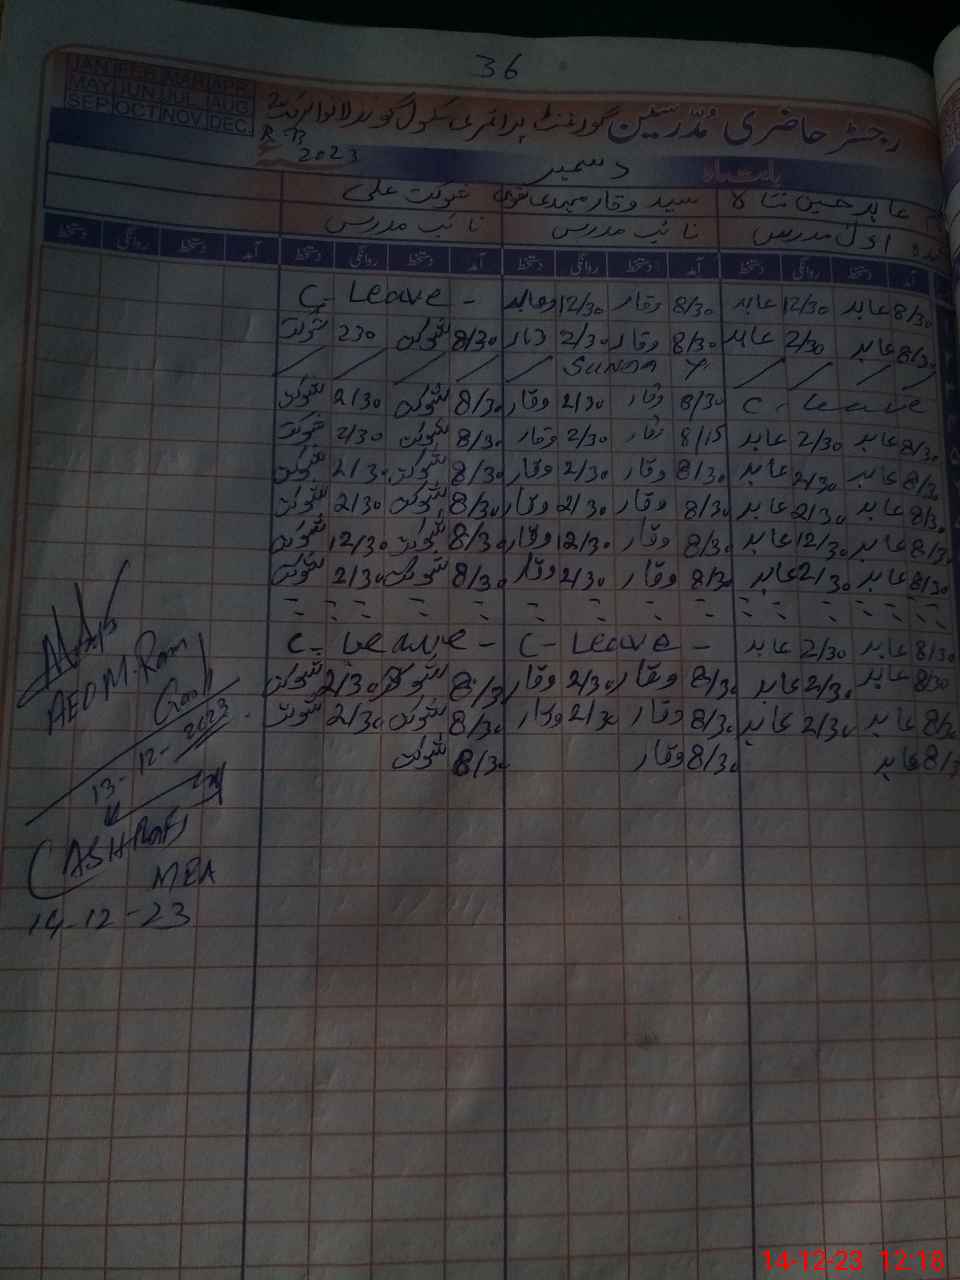 36
JAN FEB MAR APR
MAY JUN JUL AUG
SEP OCT NOV DEC
رجسٹر حاضری مدرسین گورنمنٹ پرائمری سکول
2023
بابت ماہ دسمبر
عابد حسین شاہ سید وقار شوکت علی
اول مدرس نائب مدرس نائب مدرس
آمد دستخط روانگی دستخط آمد دستخط روانگی دستخط آمد دستخط روانگی دستخط آمد دستخط روانگی دستخط
8/30 عابد 12/30 عابد 8/30 وقار 12/30 وقار C. Leave -
8/30 عابد 2/30 عابد 8/30 وقار 2/30 وقار 8/30 شوکت 230 شوکت
/ / / / SUNDAY / / / / /
C. leave 8/30 وقار 2/30 وقار 8/30 شوکت 2/30 شوکت
8/30 عابد 2/30 عابد 8/15 وقار 2/30 وقار 8/30 شوکت 2/30 شوکت
8/30 عابد 2/30 عابد 8/30 وقار 2/30 وقار 8/30 شوکت 2/30 شوکت
8/30 عابد 2/30 عابد 8/30 وقار 2/30 وقار 8/30 شوکت 2/30 شوکت
8/30 عابد 12/30 عابد 8/30 وقار 12/30 وقار 8/30 شوکت 12/30 شوکت
8/30 عابد 2/30 عابد 8/30 وقار 2/30 وقار 8/30 شوکت 2/30 شوکت
8/30 عابد 2/30 عابد C- Leave - C. Leave -
8/30 عابد 2/30 عابد 8/30 وقار 2/30 وقار 8/30 شوکت 2/30 شوکت
8/30 عابد 2/30 عابد 8/30 وقار 2/30 وقار 8/30 شوکت 2/30 شوکت
8/30 عابد 8/30 وقار 8/30 شوکت
AEO M.
13-12-2023
ASHRAF
MEA
14-12-23
14-12-23 12:18